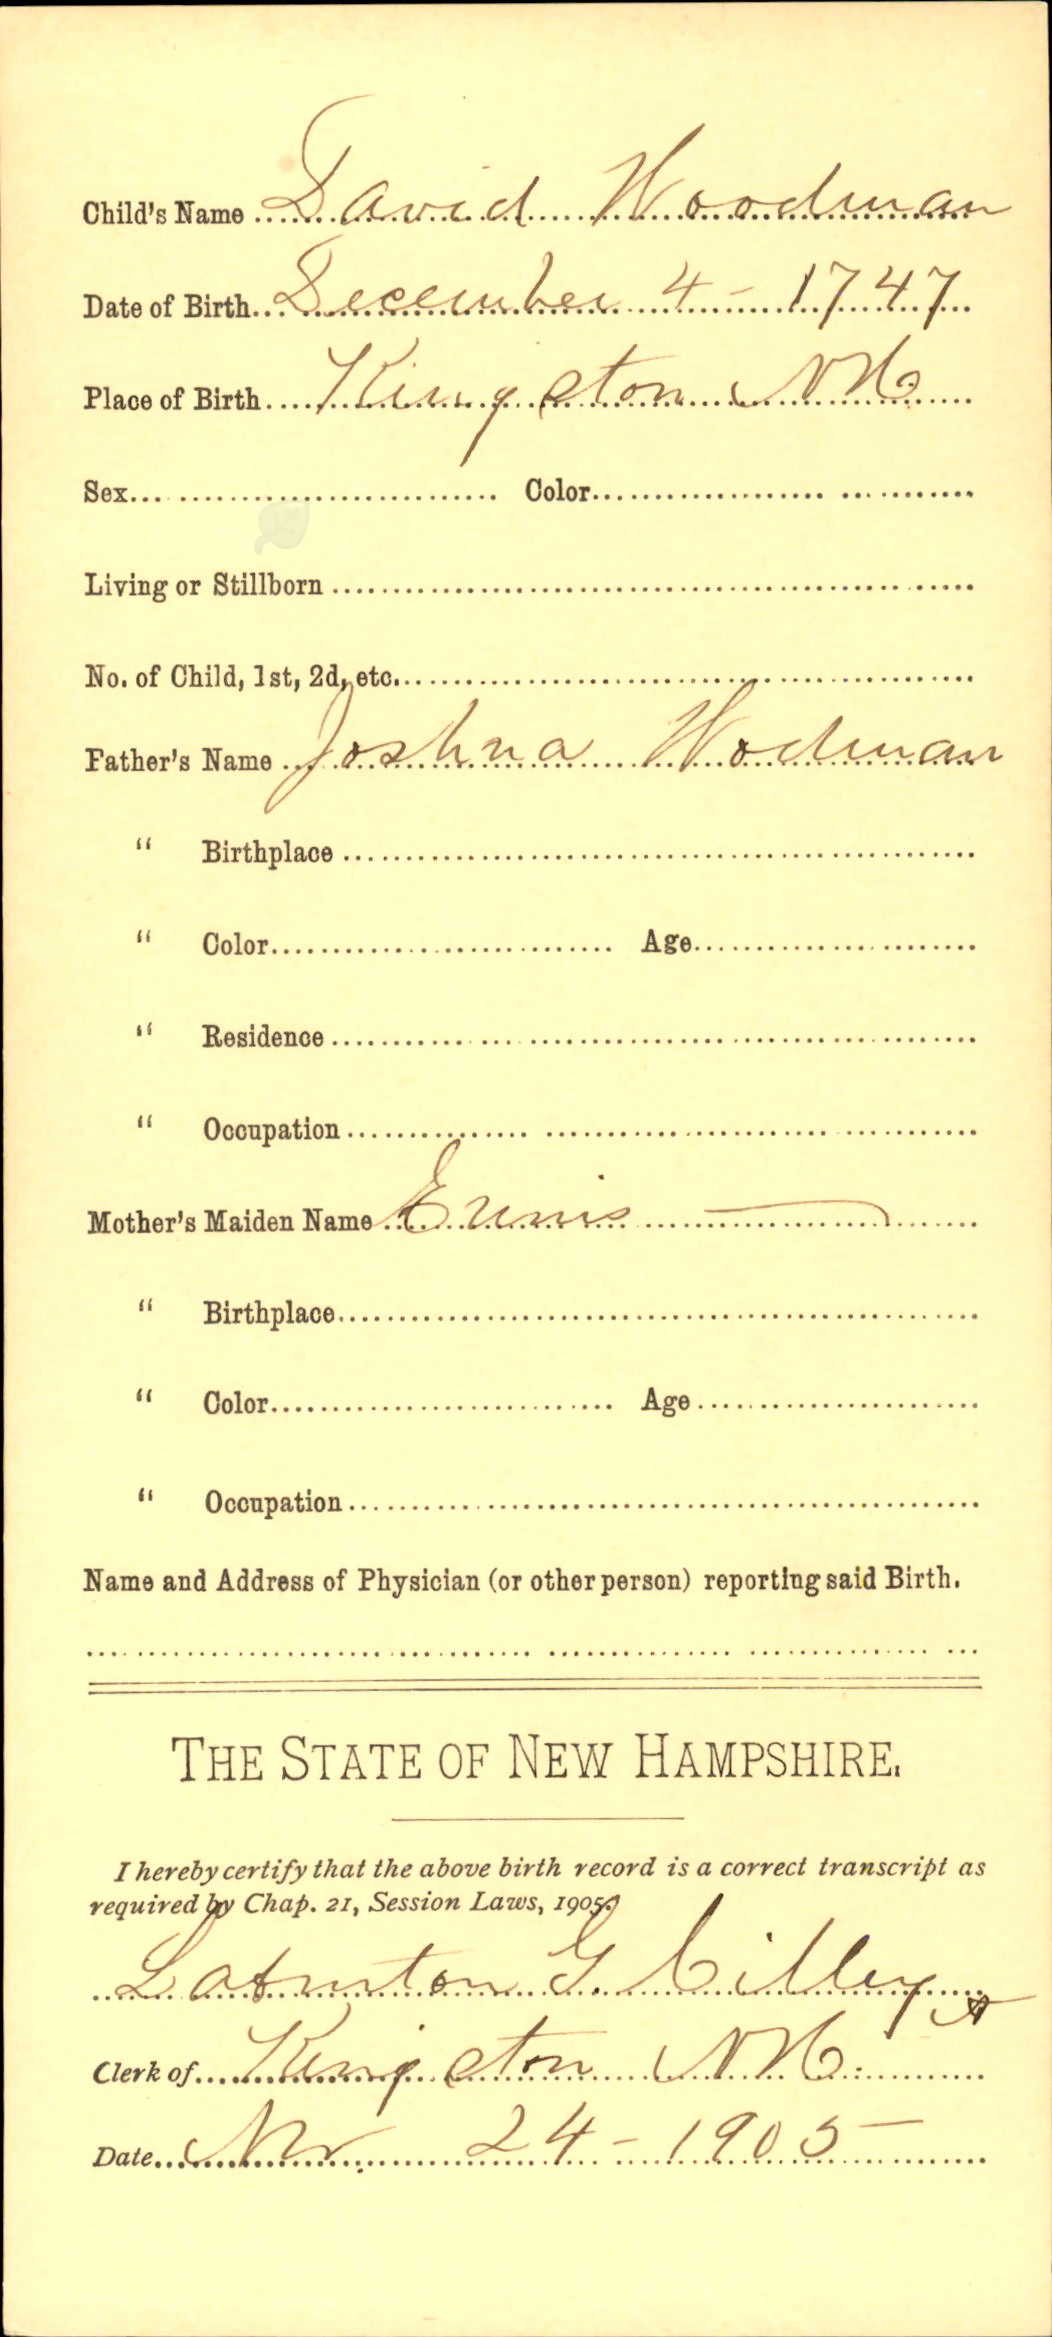 Child's Name David Woodman
Date of Birth December 4 - 1747
Place of Birth Kingston NH
Sex Color
Living or Stillborn
No. of Child, 1st, 2d, etc.
Father's Name Joshua Wodman
" Birthplace
" Color Age
" Residence
" Occupation
Mother's Maiden Name Eunis —
" Birthplace
" Color Age
" Occupation
Name and Address of Physician (or other person) reporting said Birth.
THE STATE OF NEW HAMPSHIRE.
I hereby certify that the above birth record is a correct transcript as
required by Chap. 21, Session Laws, 1905.
G. Cilley
Clerk of Kingston NH.
Date Nov 24 - 1905 -